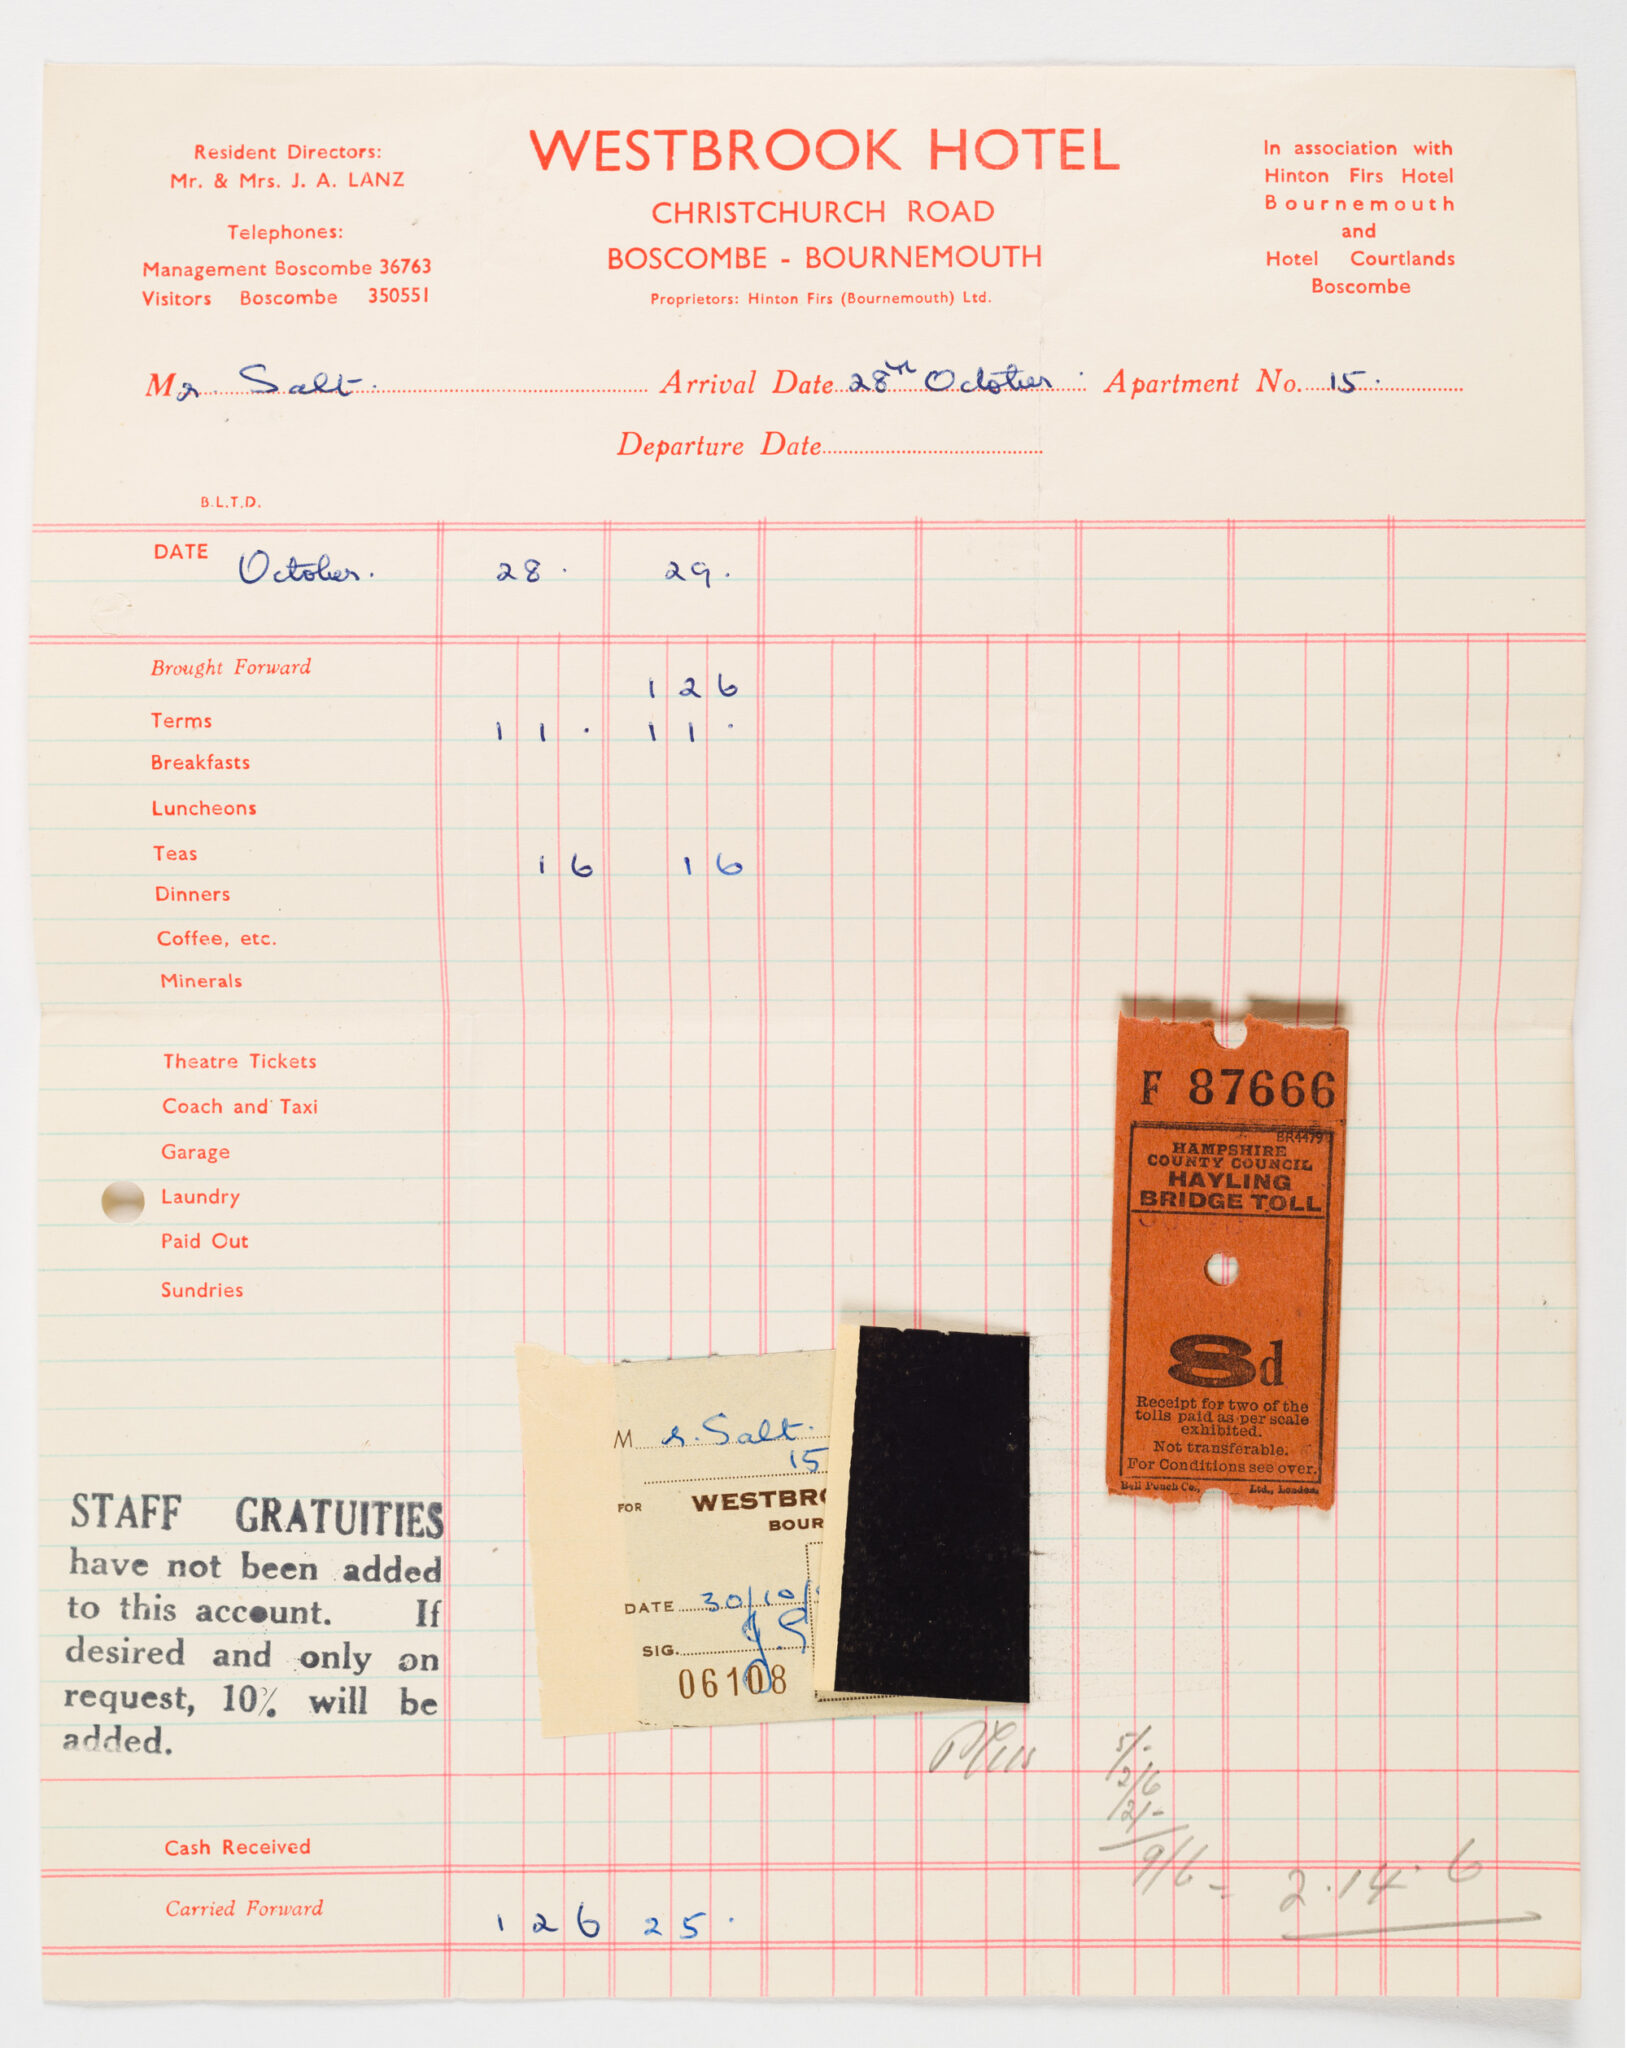 Resident Directors:
Mr. & Mrs. J. A. LANZ
Telephones:
Management Boscombe 36763
Visitors Boscombe 350551
WESTBROOK HOTEL
CHRISTCHURCH ROAD
BOSCOMBE - BOURNEMOUTH
Proprietors: Hinton Firs (Bournemouth) Ltd.
In association with
Hinton Firs Hotel
Bournemouth
and
Hotel Courtlands
Boscombe
Mr. Salt. Arrival Date 28th October. Apartment No. 15.
Departure Date
B.L.T.D.
DATE October. 28. 29.
Brought Forward 1 2 6
Terms 1 1 . 1 1 .
Breakfasts
Luncheons
Teas 1 6 1 6
Dinners
Coffee, etc.
Minerals
Theatre Tickets
Coach and Taxi
Garage
Laundry
Paid Out
Sundries
F 87666
BR4479
HAMPSHIRE
COUNTY COUNCIL
HAYLING
BRIDGE TOLL
8d
Receipt for two of the
tolls paid as per scale
exhibited.
Not transferable.
For Conditions see over.
Bell Punch Co., Ltd., London.
Mr. Salt.
15
FOR WESTBRO
BOUR
DATE 30/10/
SIG.
06108
STAFF GRATUITIES
have not been added
to this account. If
desired and only on
request, 10% will be
added.
Plus
5/-
2/6
2/-
9/6 = 2.14.6
Cash Received
Carried Forward 1 2 6 2 5 .